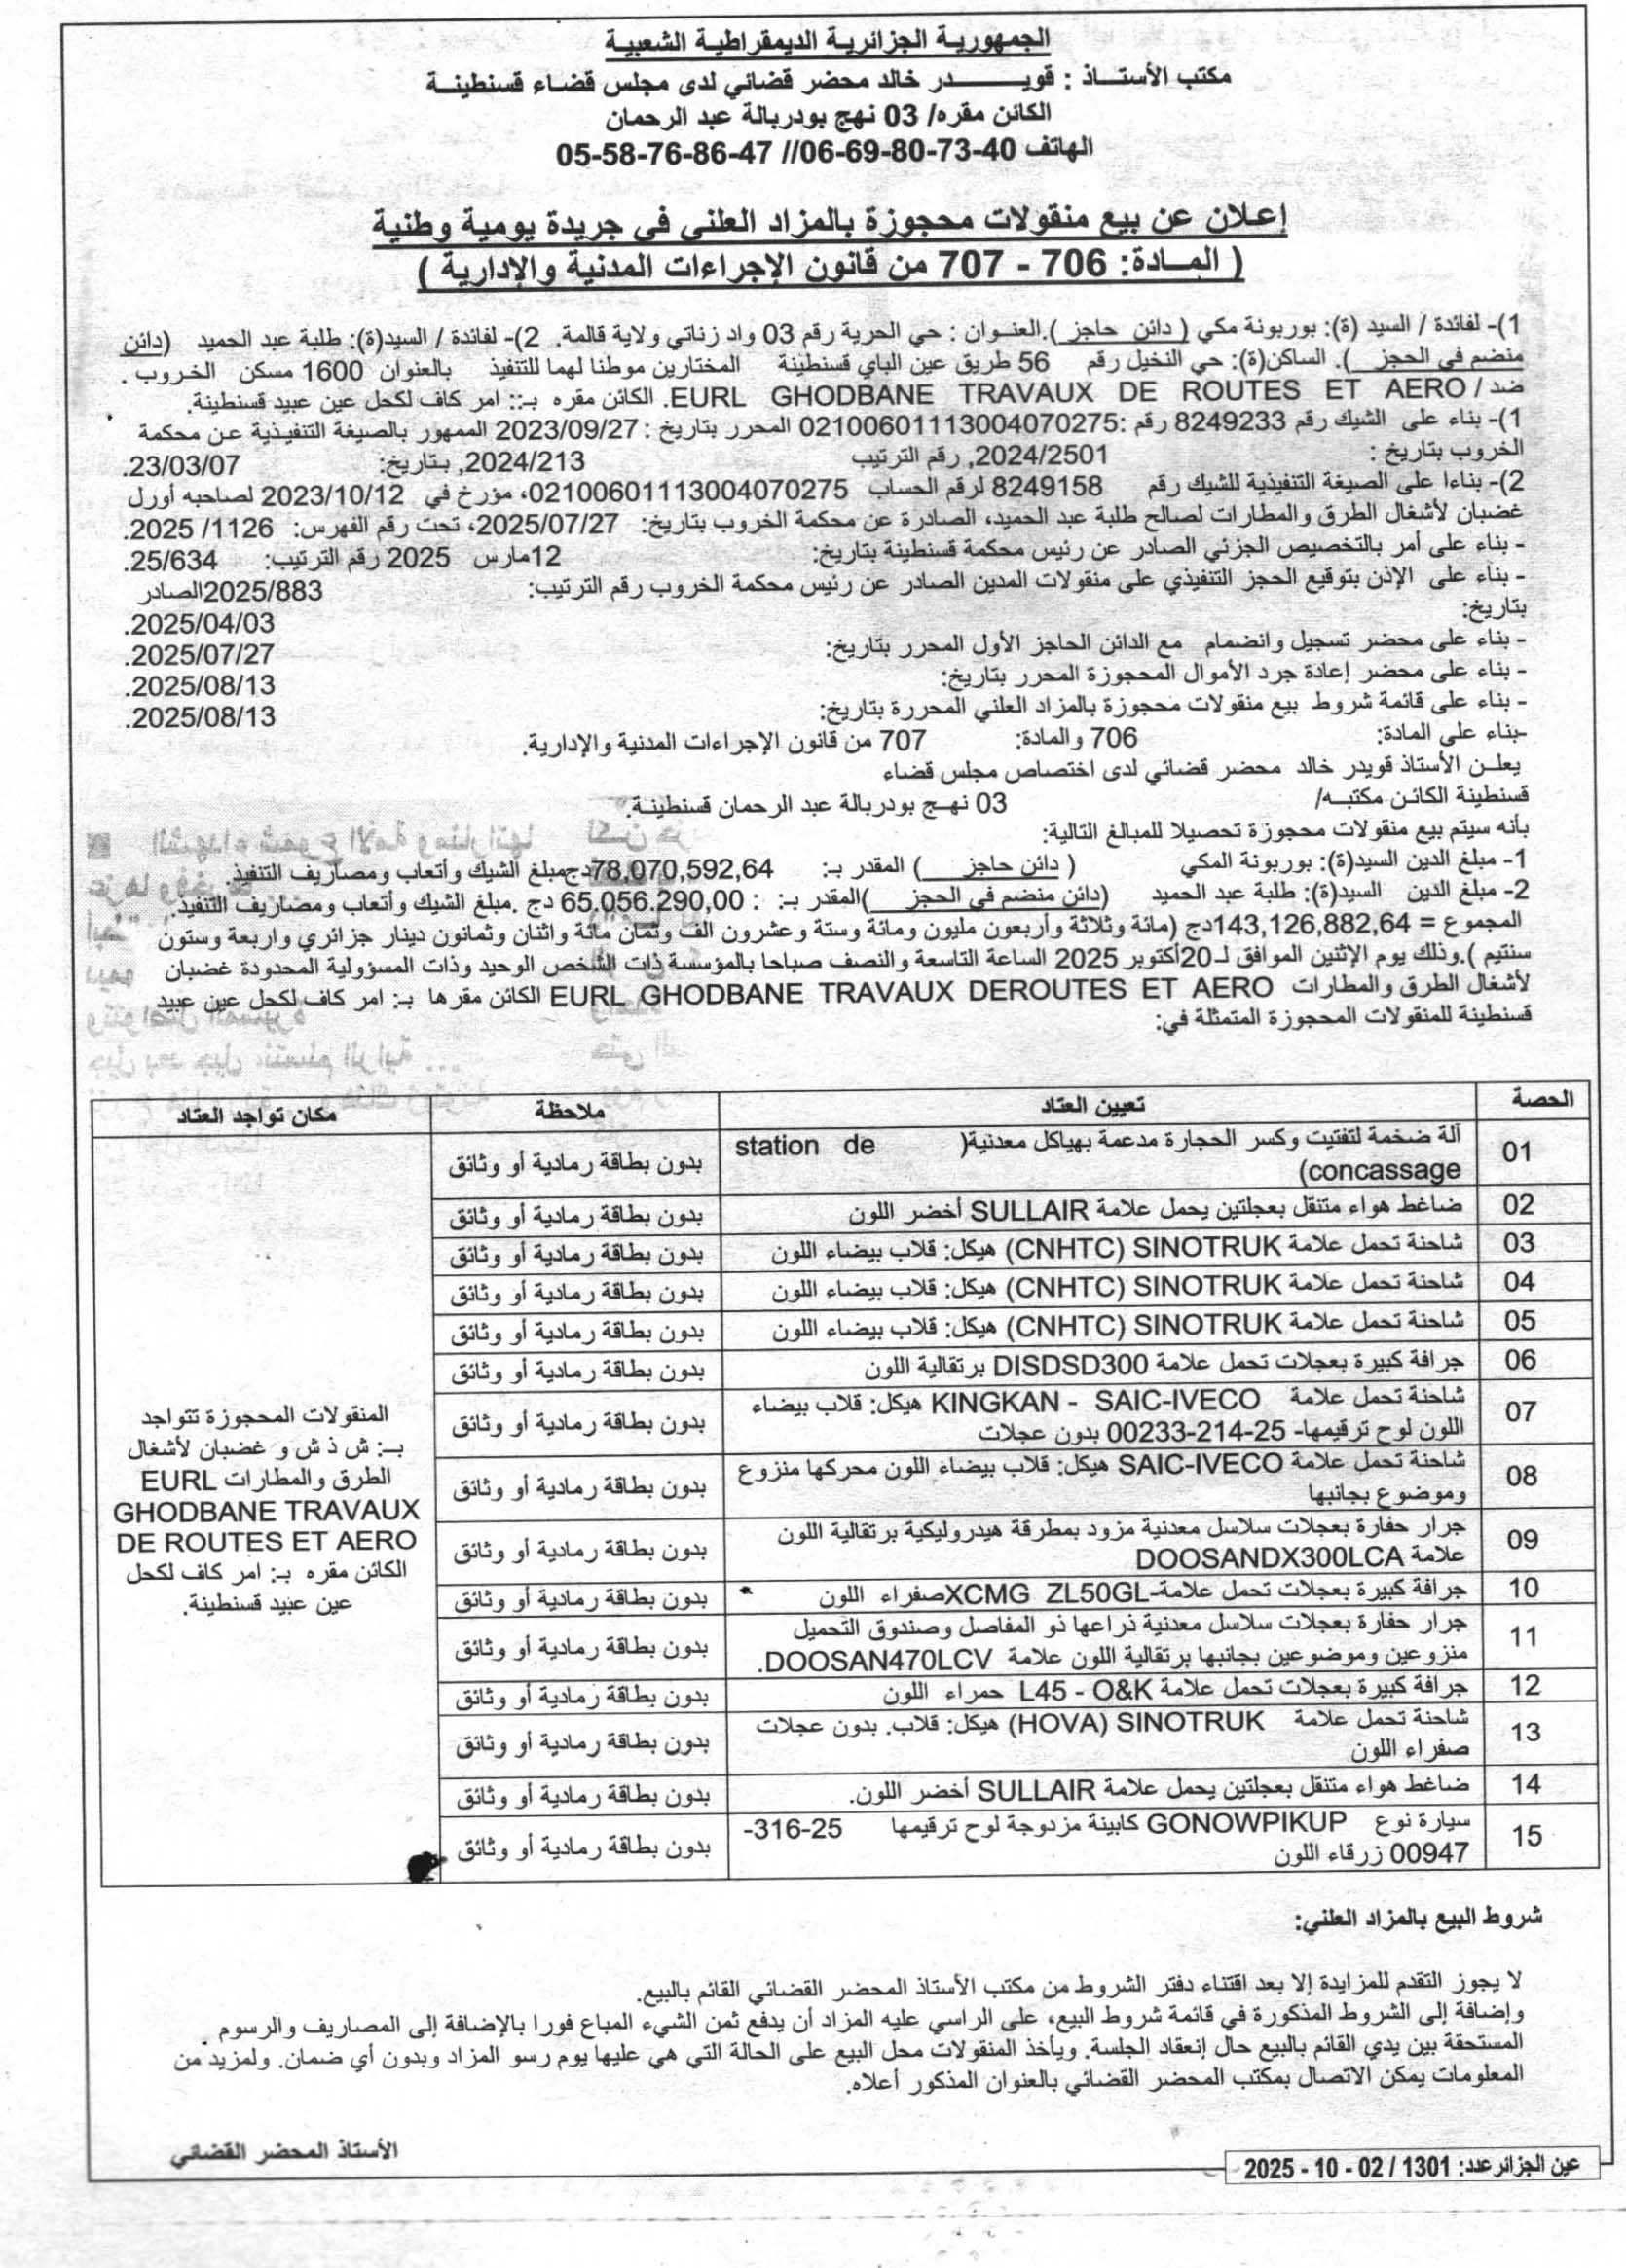 الجمهورية الجزائرية الديمقراطية الشعبية
مكتب الأستاذ : قويدر خالد محضر قضائي لدى مجلس قضاء قسنطينة
الكائن مقره/ 03 نهج بودربالة عبد الرحمان
الهاتف 05-58-76-86-47 //06-69-80-73-40
إعلان عن بيع منقولات محجوزة بالمزاد العلني في جريدة يومية وطنية
( المادة: 706 - 707 من قانون الإجراءات المدنية والإدارية )
1)- لفائدة / السيد (ة): بوربونة مكي ( دائن حاجز ).العنوان : حي الحرية رقم 03 واد زناتي ولاية قالمة. 2)- لفائدة / السيد(ة): طلبة عبد الحميد (دائن
منضم في الحجز ). الساكن(ة): حي النخيل رقم 56 طريق عين الباي قسنطينة المختارين موطنا لهما للتنفيذ بالعنوان 1600 مسكن الخروب .
ضد / EURL GHODBANE TRAVAUX DE ROUTES ET AERO. الكائن مقره بـ:: امر كاف لكحل عين عبيد قسنطينة.
1)- بناء على الشيك رقم 8249233 رقم :02100601113004070275 المحرر بتاريخ : 2023/09/27 الممهور بالصيغة التنفيذية عن محكمة
الخروب بتاريخ : 2024/2501, رقم الترتيب 2024/213, بتاريخ: 23/03/07.
2)- بناءا على الصيغة التنفيذية للشيك رقم 8249158 لرقم الحساب 02100601113004070275، مؤرخ في 2023/10/12 لصاحبه أورل
غضبان لأشغال الطرق والمطارات لصالح طلبة عبد الحميد، الصادرة عن محكمة الخروب بتاريخ: 2025/07/27، تحت رقم الفهرس: 1126 /2025.
- بناء على أمر بالتخصيص الجزئي الصادر عن رئيس محكمة قسنطينة بتاريخ: 12مارس 2025 رقم الترتيب: 25/634.
- بناء على الإذن بتوقيع الحجز التنفيذي على منقولات المدين الصادر عن رئيس محكمة الخروب رقم الترتيب: 2025/883الصادر
بتاريخ: 2025/04/03.
- بناء على محضر تسجيل وانضمام مع الدائن الحاجز الأول المحرر بتاريخ: 2025/07/27.
- بناء على محضر إعادة جرد الأموال المحجوزة المحرر بتاريخ: 2025/08/13.
- بناء على قائمة شروط بيع منقولات محجوزة بالمزاد العلني المحررة بتاريخ: 2025/08/13.
-بناء على المادة: 706 والمادة: 707 من قانون الإجراءات المدنية والإدارية.
يعلن الأستاذ قويدر خالد محضر قضائي لدى اختصاص مجلس قضاء
قسنطينة الكائن مكتبه/ 03 نهج بودربالة عبد الرحمان قسنطينة.
بأنه سيتم بيع منقولات محجوزة تحصيلا للمبالغ التالية:
1- مبلغ الدين السيد(ة): بوربونة المكي ( دائن حاجز ) المقدر بـ: 78,070,592,64دج مبلغ الشيك وأتعاب ومصاريف التنفيذ.
2- مبلغ الدين السيد(ة): طلبة عبد الحميد (دائن منضم في الحجز )المقدر بـ: : 65.056.290,00 دج .مبلغ الشيك وأتعاب ومصاريف التنفيذ.
المجموع = 143,126,882,64دج (مائة وثلاثة وأربعون مليون ومائة وستة وعشرون الف وثمان مائة واثنان وثمانون دينار جزائري واربعة وستون
سنتيم ).وذلك يوم الإثنين الموافق لـ20أكتوبر 2025 الساعة التاسعة والنصف صباحا بالمؤسسة ذات الشخص الوحيد وذات المسؤولية المحدودة غضبان
لأشغال الطرق والمطارات EURL GHODBANE TRAVAUX DEROUTES ET AERO الكائن مقرها بـ: امر كاف لكحل عين عبيد
قسنطينة للمنقولات المحجوزة المتمثلة في:
الحصة تعيين العتاد ملاحظة مكان تواجد العتاد
01 آلة ضخمة لتفتيت وكسر الحجارة مدعمة بهياكل معدنية( station de
concassage) بدون بطاقة رمادية أو وثائق
02 ضاغط هواء متنقل بعجلتين يحمل علامة SULLAIR أخضر اللون بدون بطاقة رمادية أو وثائق
03 شاحنة تحمل علامة CNHTC) SINOTRUK) هيكل: قلاب بيضاء اللون بدون بطاقة رمادية أو وثائق
04 شاحنة تحمل علامة CNHTC) SINOTRUK) هيكل: قلاب بيضاء اللون بدون بطاقة رمادية أو وثائق
05 شاحنة تحمل علامة CNHTC) SINOTRUK) هيكل: قلاب بيضاء اللون بدون بطاقة رمادية أو وثائق
06 جرافة كبيرة بعجلات تحمل علامة DISDSD300 برتقالية اللون بدون بطاقة رمادية أو وثائق
07 شاحنة تحمل علامة KINGKAN - SAIC-IVECO هيكل: قلاب بيضاء
اللون لوح ترقيمها- 25-214-00233 بدون عجلات بدون بطاقة رمادية أو وثائق
08 شاحنة تحمل علامة SAIC-IVECO هيكل: قلاب بيضاء اللون محركها منزوع
وموضوع بجانبها بدون بطاقة رمادية أو وثائق
09 جرار حفارة بعجلات سلاسل معدنية مزود بمطرقة هيدروليكية برتقالية اللون
علامة DOOSANDX300LCA بدون بطاقة رمادية أو وثائق
10 جرافة كبيرة بعجلات تحمل علامة-XCMG ZL50GLصفراء اللون بدون بطاقة رمادية أو وثائق
11 جرار حفارة بعجلات سلاسل معدنية ذراعها ذو المفاصل وصندوق التحميل
منزوعين وموضوعين بجانبها برتقالية اللون علامة DOOSAN470LCV. بدون بطاقة رمادية أو وثائق
12 جرافة كبيرة بعجلات تحمل علامة L45 - O&K حمراء اللون بدون بطاقة رمادية أو وثائق
13 شاحنة تحمل علامة HOVA) SINOTRUK) هيكل: قلاب. بدون عجلات
صفراء اللون بدون بطاقة رمادية أو وثائق
14 ضاغط هواء متنقل بعجلتين يحمل علامة SULLAIR أخضر اللون. بدون بطاقة رمادية أو وثائق
15 سيارة نوع GONOWPIKUP كابينة مزدوجة لوح ترقيمها 25-316-
00947 زرقاء اللون بدون بطاقة رمادية أو وثائق
المنقولات المحجوزة تتواجد
بـ: ش ذ ش و غضبان لأشغال
الطرق والمطارات EURL
GHODBANE TRAVAUX
DE ROUTES ET AERO
الكائن مقره بـ: امر كاف لكحل
عين عبيد قسنطينة.
شروط البيع بالمزاد العلني:
لا يجوز التقدم للمزايدة إلا بعد اقتناء دفتر الشروط من مكتب الأستاذ المحضر القضائي القائم بالبيع.
وإضافة إلى الشروط المذكورة في قائمة شروط البيع، على الراسي عليه المزاد أن يدفع ثمن الشيء المباع فورا بالإضافة إلى المصاريف والرسوم
المستحقة بين يدي القائم بالبيع حال إنعقاد الجلسة. ويأخذ المنقولات محل البيع على الحالة التي هي عليها يوم رسو المزاد وبدون أي ضمان. ولمزيد من
المعلومات يمكن الاتصال بمكتب المحضر القضائي بالعنوان المذكور أعلاه.
الأستاذ المحضر القضائي
عين الجزائر عدد: 1301 / 02 - 10 - 2025